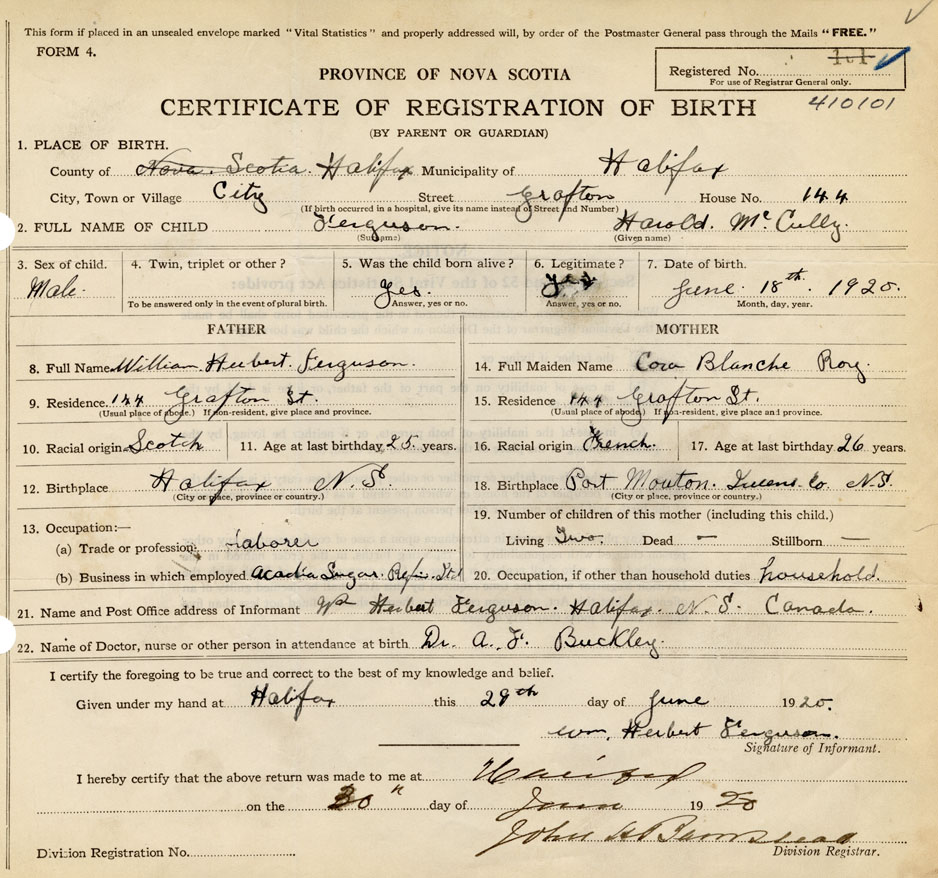 This form if placed in an unsealed envelope marked "Vital Statistics" and properly addressed will, by order of the Postmaster General pass through the Mails "FREE."
FORM 4.
PROVINCE OF NOVA SCOTIA
Registered No.
For use of Registrar General only.
CERTIFICATE OF REGISTRATION OF BIRTH 410101
(BY PARENT OR GUARDIAN)
1. PLACE OF BIRTH.
County of Nova Scotia Halifax Municipality of Halifax
City, Town or Village City Street Grafton House No. 144
(If birth occurred in a hospital, give its name instead of Street and Number)
2. FULL NAME OF CHILD Ferguson. Harold. McCully.
(Surname) (Given name)
3. Sex of child. 4. Twin, triplet or other? 5. Was the child born alive? 6. Legitimate? 7. Date of birth.
Male. Yes. Yes June 18th. 1920.
To be answered only in the event of plural birth. Answer, yes or no. Answer, yes or no. Month, day, year.
FATHER MOTHER
8. Full Name William Herbert Ferguson. 14. Full Maiden Name Cora Blanche Roy.
9. Residence 144 Grafton St. 15. Residence 144 Grafton St.
(Usual place of abode.) If non-resident, give place and province. (Usual place of abode) If non-resident, give place and province.
10. Racial origin Scotch 11. Age at last birthday 25. years. 16. Racial origin French. 17. Age at last birthday 26 years.
12. Birthplace Halifax N.S. 18. Birthplace Port Mouton. Queens Co. N.S.
(City or place, province or country.) (City or place, province or country.)
13. Occupation:— 19. Number of children of this mother (including this child.)
(a) Trade or profession: Laborer Living Two. Dead — Stillborn —
(b) Business in which employed Acadia Sugar. Refin. Ltd 20. Occupation, if other than household duties household.
21. Name and Post Office address of Informant Wm Herbert Ferguson. Halifax. N.S. Canada.
22. Name of Doctor, nurse or other person in attendance at birth Dr. A. F. Buckley.
I certify the foregoing to be true and correct to the best of my knowledge and belief.
Given under my hand at Halifax this 29th day of June 1920.
Wm. Herbert Ferguson.
Signature of Informant.
I hereby certify that the above return was made to me at Halifax
on the 30th day of June 1920
John H Barnstead
Division Registration No. Division Registrar.